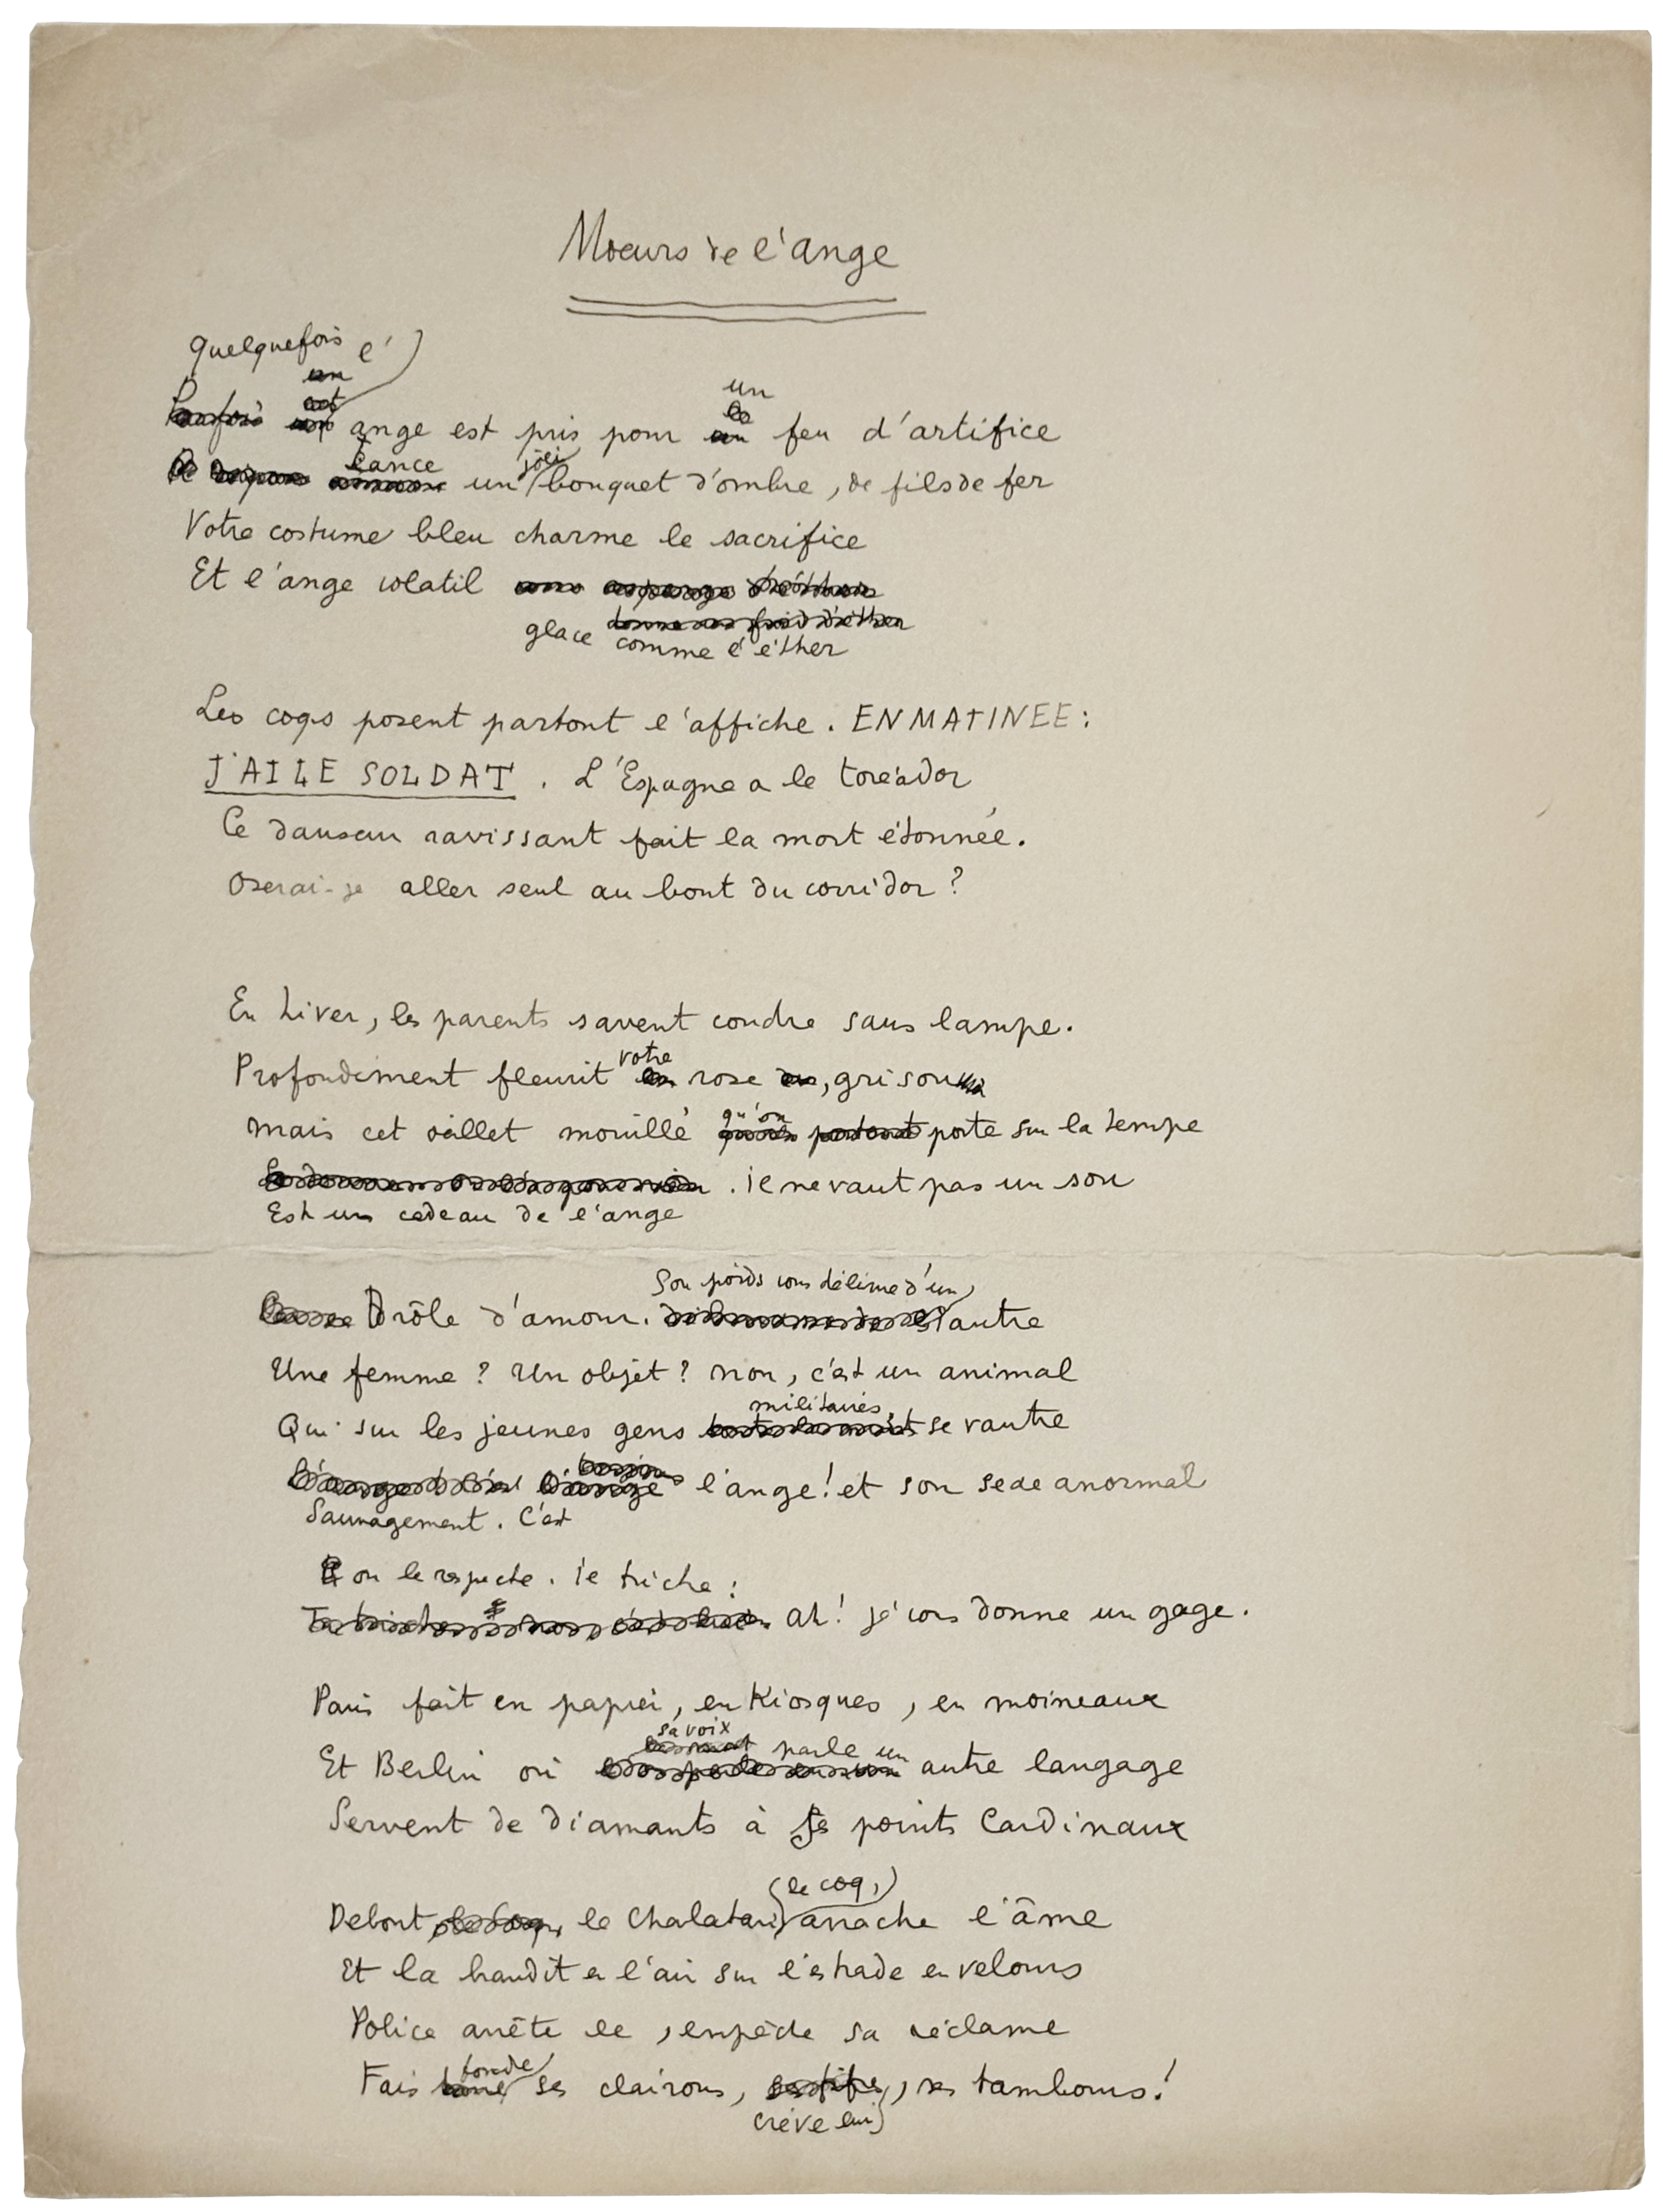 Moeurs de l'ange
Quelquefois l'
un
ange est pris pour un feu d'artifice
lance un joli bouquet d'ombre, de fils de fer
Votre costume bleu charme le sacrifice
Et l'ange volatil
glace comme l'éther
Les coqs posent partout l'affiche. EN MATINEE :
J'AI LE SOLDAT. L'Espagne a le toréador
Ce danseur ravissant fait la mort étonnée.
Oserai-je aller seul au bout du corridor ?
En hiver, les parents savent coudre sans lampe.
Profondément fleurit votre rose, grisou
mais cet oeillet mouillé qu'on porte sur la tempe
. il ne vaut pas un sou
Est un cadeau de l'ange
Son poids vous délivre d'un
Drôle d'amour. autre
Une femme ? Un objet ? non, c'est un animal
militaires,
Qui sur les jeunes gens se vautre
l'ange! et son sexe anormal
Sauvagement. C'est
on le respecte. il triche :
Ah! je vous donne un gage.
Paris fait en papier, en Kiosques, en moineaux
sa voix parle un
Et Berlin où autre langage
Servent de diamants à ses points Cardinaux
(le coq,)
Debout, le Charlatan arrache l'âme
Et la brandit en l'air sur l'estrade en velours
Police arrête le, empêche sa réclame
Fais fondre ses clairons, , ses tambours!
crève lui